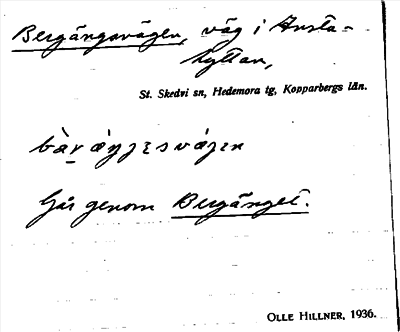 Bergängsvägen, väg i Ansta-
hyttan,
St. Skedvi sn, Hedemora tg, Kopparbergs län.
Går genom Bergänget.
OLLE HILLNER, 1936.